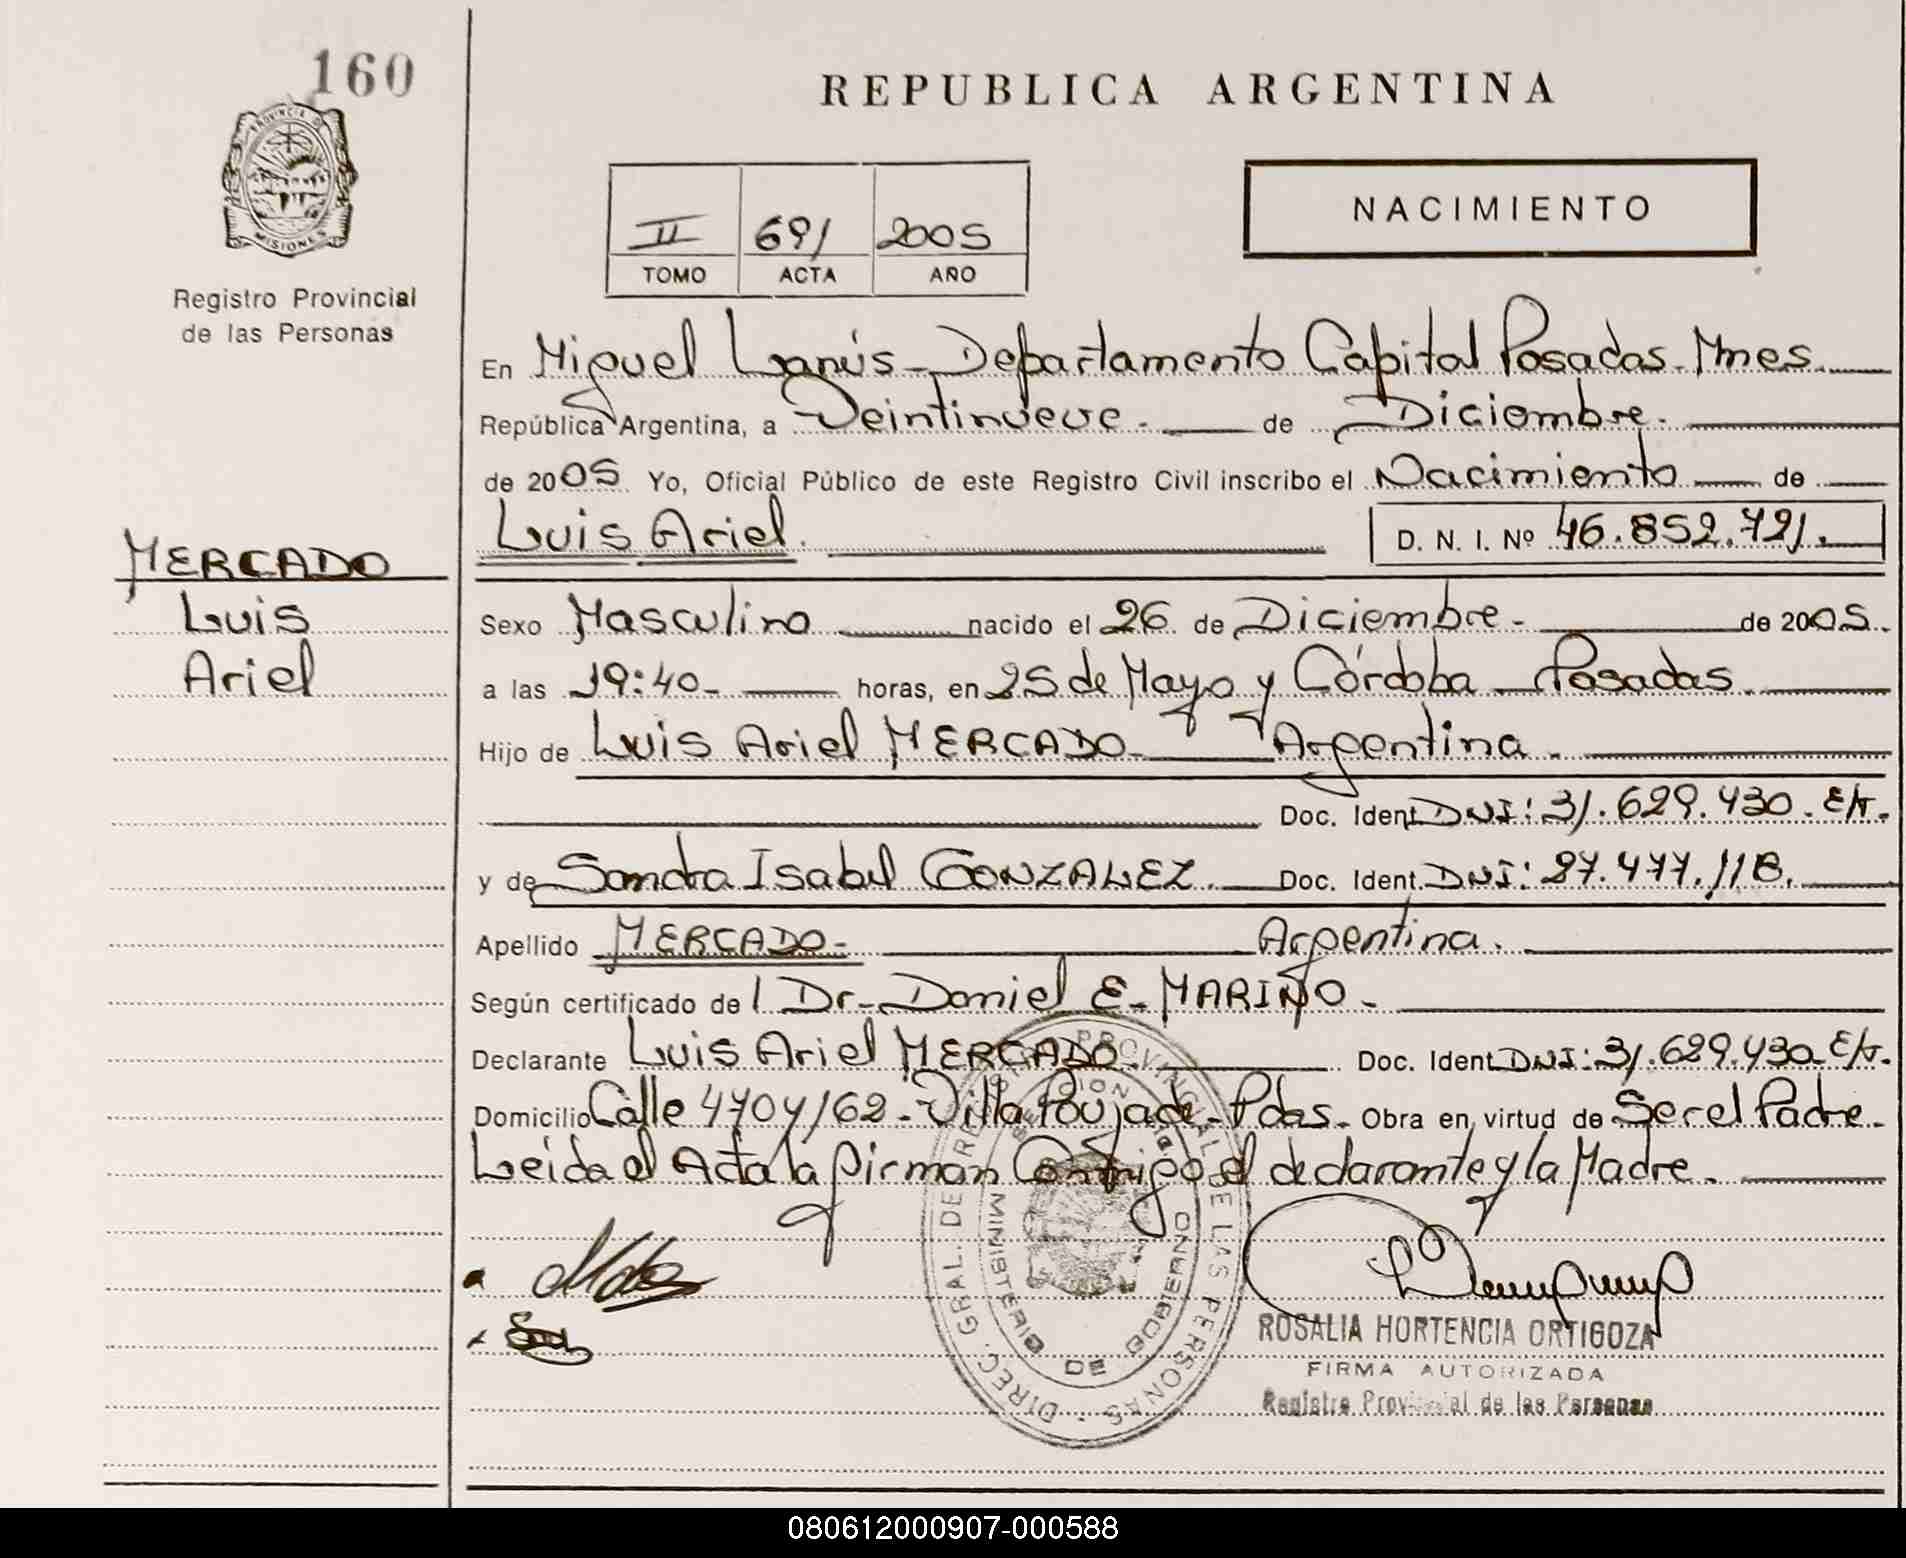 160
PROVINCIA DE
MISIONES
Registro Provincial
de las Personas
MERCADO
Luis
Ariel
REPUBLICA ARGENTINA
II 691 2005
TOMO ACTA AÑO
NACIMIENTO
En Miguel Lanús - Departamento Capital Posadas - Mnes.
República Argentina, a Veintinueve. de Diciembre.
de 2005 Yo, Oficial Público de este Registro Civil inscribo el Nacimiento de
Luis Ariel. D. N. I. Nº 46.852.721.
Sexo Masculino nacido el 26 de Diciembre - de 2005.
a las 19:40 - horas, en 25 de Mayo y Córdoba - Posadas.
Hijo de Luis Ariel MERCADO - Argentina.
Doc. Ident. DNI: 31.629.430. E/t.
y de Sandra Isabel GONZALEZ. Doc. Ident. DNI: 27.477.118.
Apellido MERCADO - Argentina.
Según certificado del Dr - Daniel E - MARIÑO -
Declarante Luis Ariel MERCADO - Doc. Ident. DNI: 31.629.430 - E/t.
Domicilio Calle 4704/62 - Villa Poujade - Pdas. Obra en virtud de Ser el Padre.
Leída el Acta la firman Conmigo el declarante y la Madre.
DIREC. GRAL. DE REGISTRO PROVINCIAL DE LAS PERSONAS
MINISTERIO DE GOBIERNO
ROSALIA HORTENCIA ORTIGOZA
FIRMA AUTORIZADA
Registro Provincial de las Personas
080612000907-000588